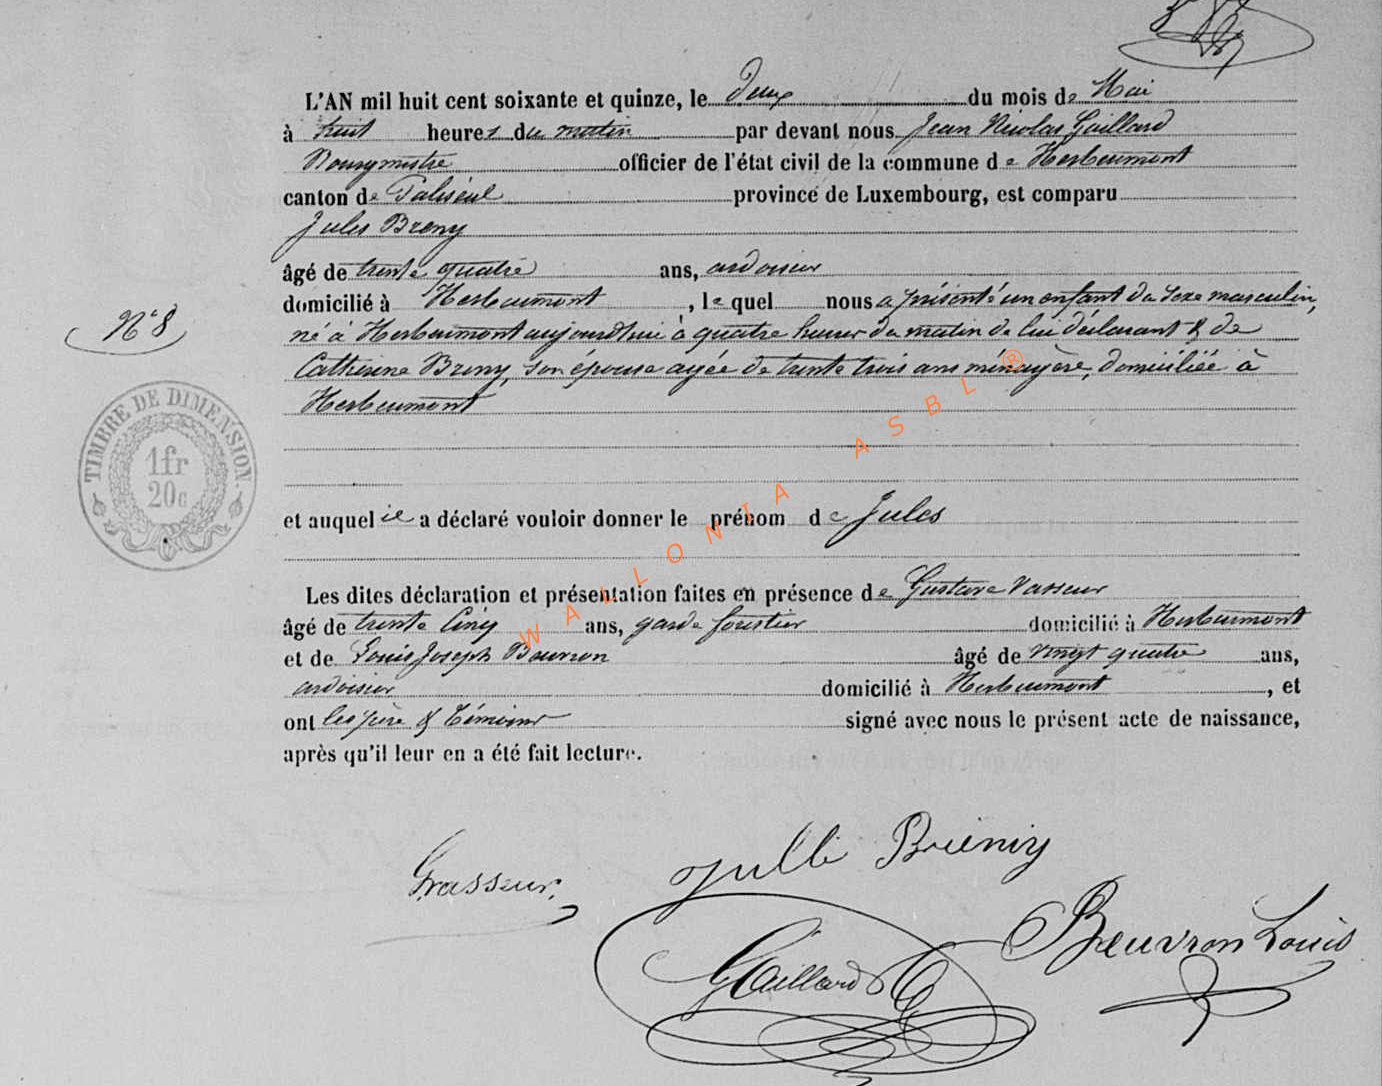 L'AN mil huit cent soixante et quinze, le Deux du mois de Mai
à huit heures du matin par devant nous Jean Nicolas Gaillard
Bourgmestre officier de l'état civil de la commune de Herbeumont
canton de Paliseul province de Luxembourg, est comparu
Jules Breny
âgé de trente quatre ans, ardoisier
domicilié à Herbeumont, lequel nous a présenté un enfant du sexe masculin,
N° 8
né à Herbeumont aujourd'hui à quatre heures du matin de lui déclarant & de
Catherine Breny, son épouse agée de trente trois ans ménagère, domiciliée à
Herbeumont
TIMBRE DE DIMENSION
1fr
20c
et auquel il a déclaré vouloir donner le prénom de Jules
Les dites déclaration et présentation faites en présence de Gustave Vasseur
âgé de trente Cinq ans, garde forestier domicilié à Herbeumont
et de Louis Joseph Bauvron âgé de vingt quatre ans,
ardoisier domicilié à Herbeumont, et
ont les père & témoins signé avec nous le présent acte de naissance,
après qu'il leur en a été fait lecture.
Brieniy
Gaillard
Beuvron Louis
WALLONIA ASBL ®